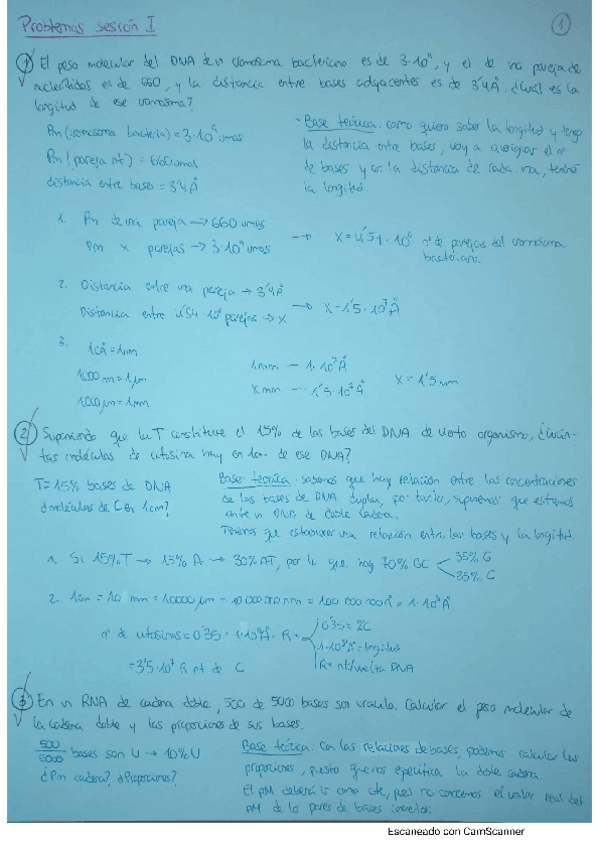 Problemas sesión I
1
① El peso molecular del DNA de un cromosoma bacteriano es de 3·10⁹, y el de una pareja de
nucleótidos es de 660, y la distancia entre bases adyacentes es de 3'4Å. ¿Cuál es la
longitud de ese cromosoma?
Pm (cromosoma bacteria) = 3·10⁹ umas
Pm (pareja nt) = 660 umas
distancia entre bases = 3'4Å
- Base teórica: como quiero saber la longitud y tengo
la distancia entre bases, voy a averiguar el nº
de bases y con la distancia de cada una, tendré
la longitud.
1. Pm de una pareja → 660 umas
Pm x parejas → 3·10⁹ umas
→ X = 4'54·10⁶ nº de parejas del cromosoma
bacteriano.
2. Distancia entre una pareja → 3'4Å
Distancia entre 4'54·10⁶ parejas → x
→ X = 1'5·10⁷Å
3.
1000 nm = 1µm
1000 µm = 1mm
1mm — 1·10⁷Å
x mm — 1'5·10⁷Å
② Suponiendo que la T constituye el 15% de las bases del DNA de cierto organismo, ¿cuán-
tas moléculas de citosina hay en 1cm de ese DNA?
T = 15% bases de DNA
¿moléculas de C en 1cm?
Base teórica: sabemos que hay relación entre las concentraciones
de las bases de DNA duplex, por tanto, suponemos que estamos
ante un DNA de doble cadena.
Tenemos que establecer una relación entre las bases y la longitud.
1. Si 15% T → 15% A → 30% AT, por lo que hay 70% GC
35% G
35% C
2. 1cm = 10 mm = 10000 µm = 10 000 000 nm = 100 000 000Å = 1·10⁸Å
nº de citosinas = 0'35 · 1·10⁸Å · R
0'35 = %C
1·10⁸Å = longitud
R = nt/vuelta DNA
= 3'5·10⁷ R nt de C
③ En un RNA de cadena doble, 500 de 5000 bases son uracilo. Calcular el peso molecular de
la cadena doble y las proporciones de sus bases.
500/5000 bases son U → 10% U
¿Pm cadena? ¿Proporciones?
Base teórica: Con las relaciones de bases, podemos calcular las
proporciones, puesto que nos especifica la doble cadena.
El pM deberá ir como cte, pues no conocemos el valor real del
pM de los pares de bases
Escaneado con CamScanner